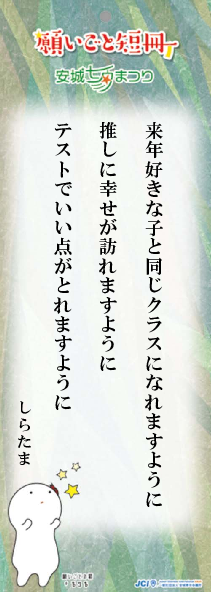 願いごと短冊
安城七夕まつり
来年好きな子と同じクラスになれますように
推しに幸せが訪れますように
テストでいい点がとれますように
しらたま
JCI